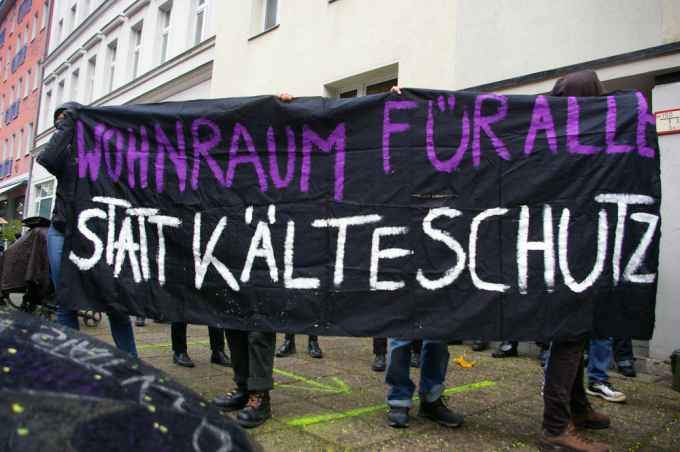 WOHNRAUM FÜR ALLE
STATT KÄLTESCHUTZ